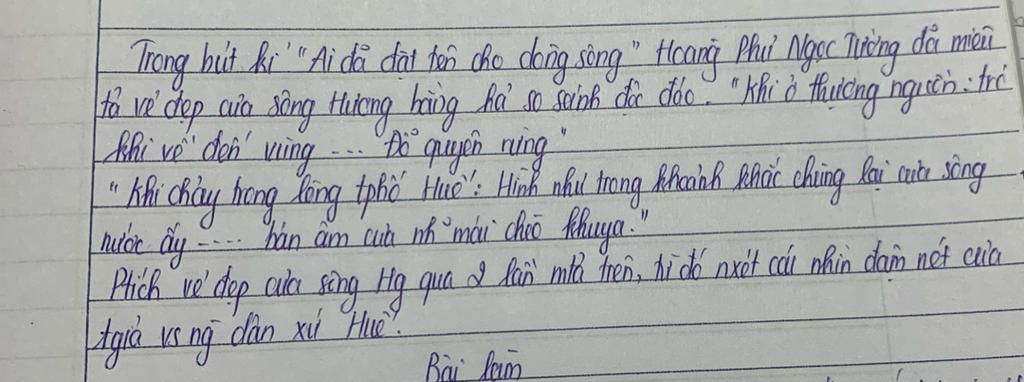 Trong bút kí "Ai đã đặt tên cho dòng sông" Hoàng Phủ Ngọc Tường đã miêu
tả vẻ đẹp của sông Hương bằng so sánh độc đáo. "Khi ở thượng nguồn: trc
khi về đến vùng ... Đỗ quyên rừng"
"Khi chảy trong lòng tphố Huế": Hình như trong khoảnh khắc chùng lại của sông
nước ấy .... bán âm của mái chèo khuya."
Ptích vẻ đẹp của sông Hg qua 2 lần mtả trên, từ đó nxét cái nhìn đậm nét của
tgiả vs ng dân xứ Huế.
Bài làm